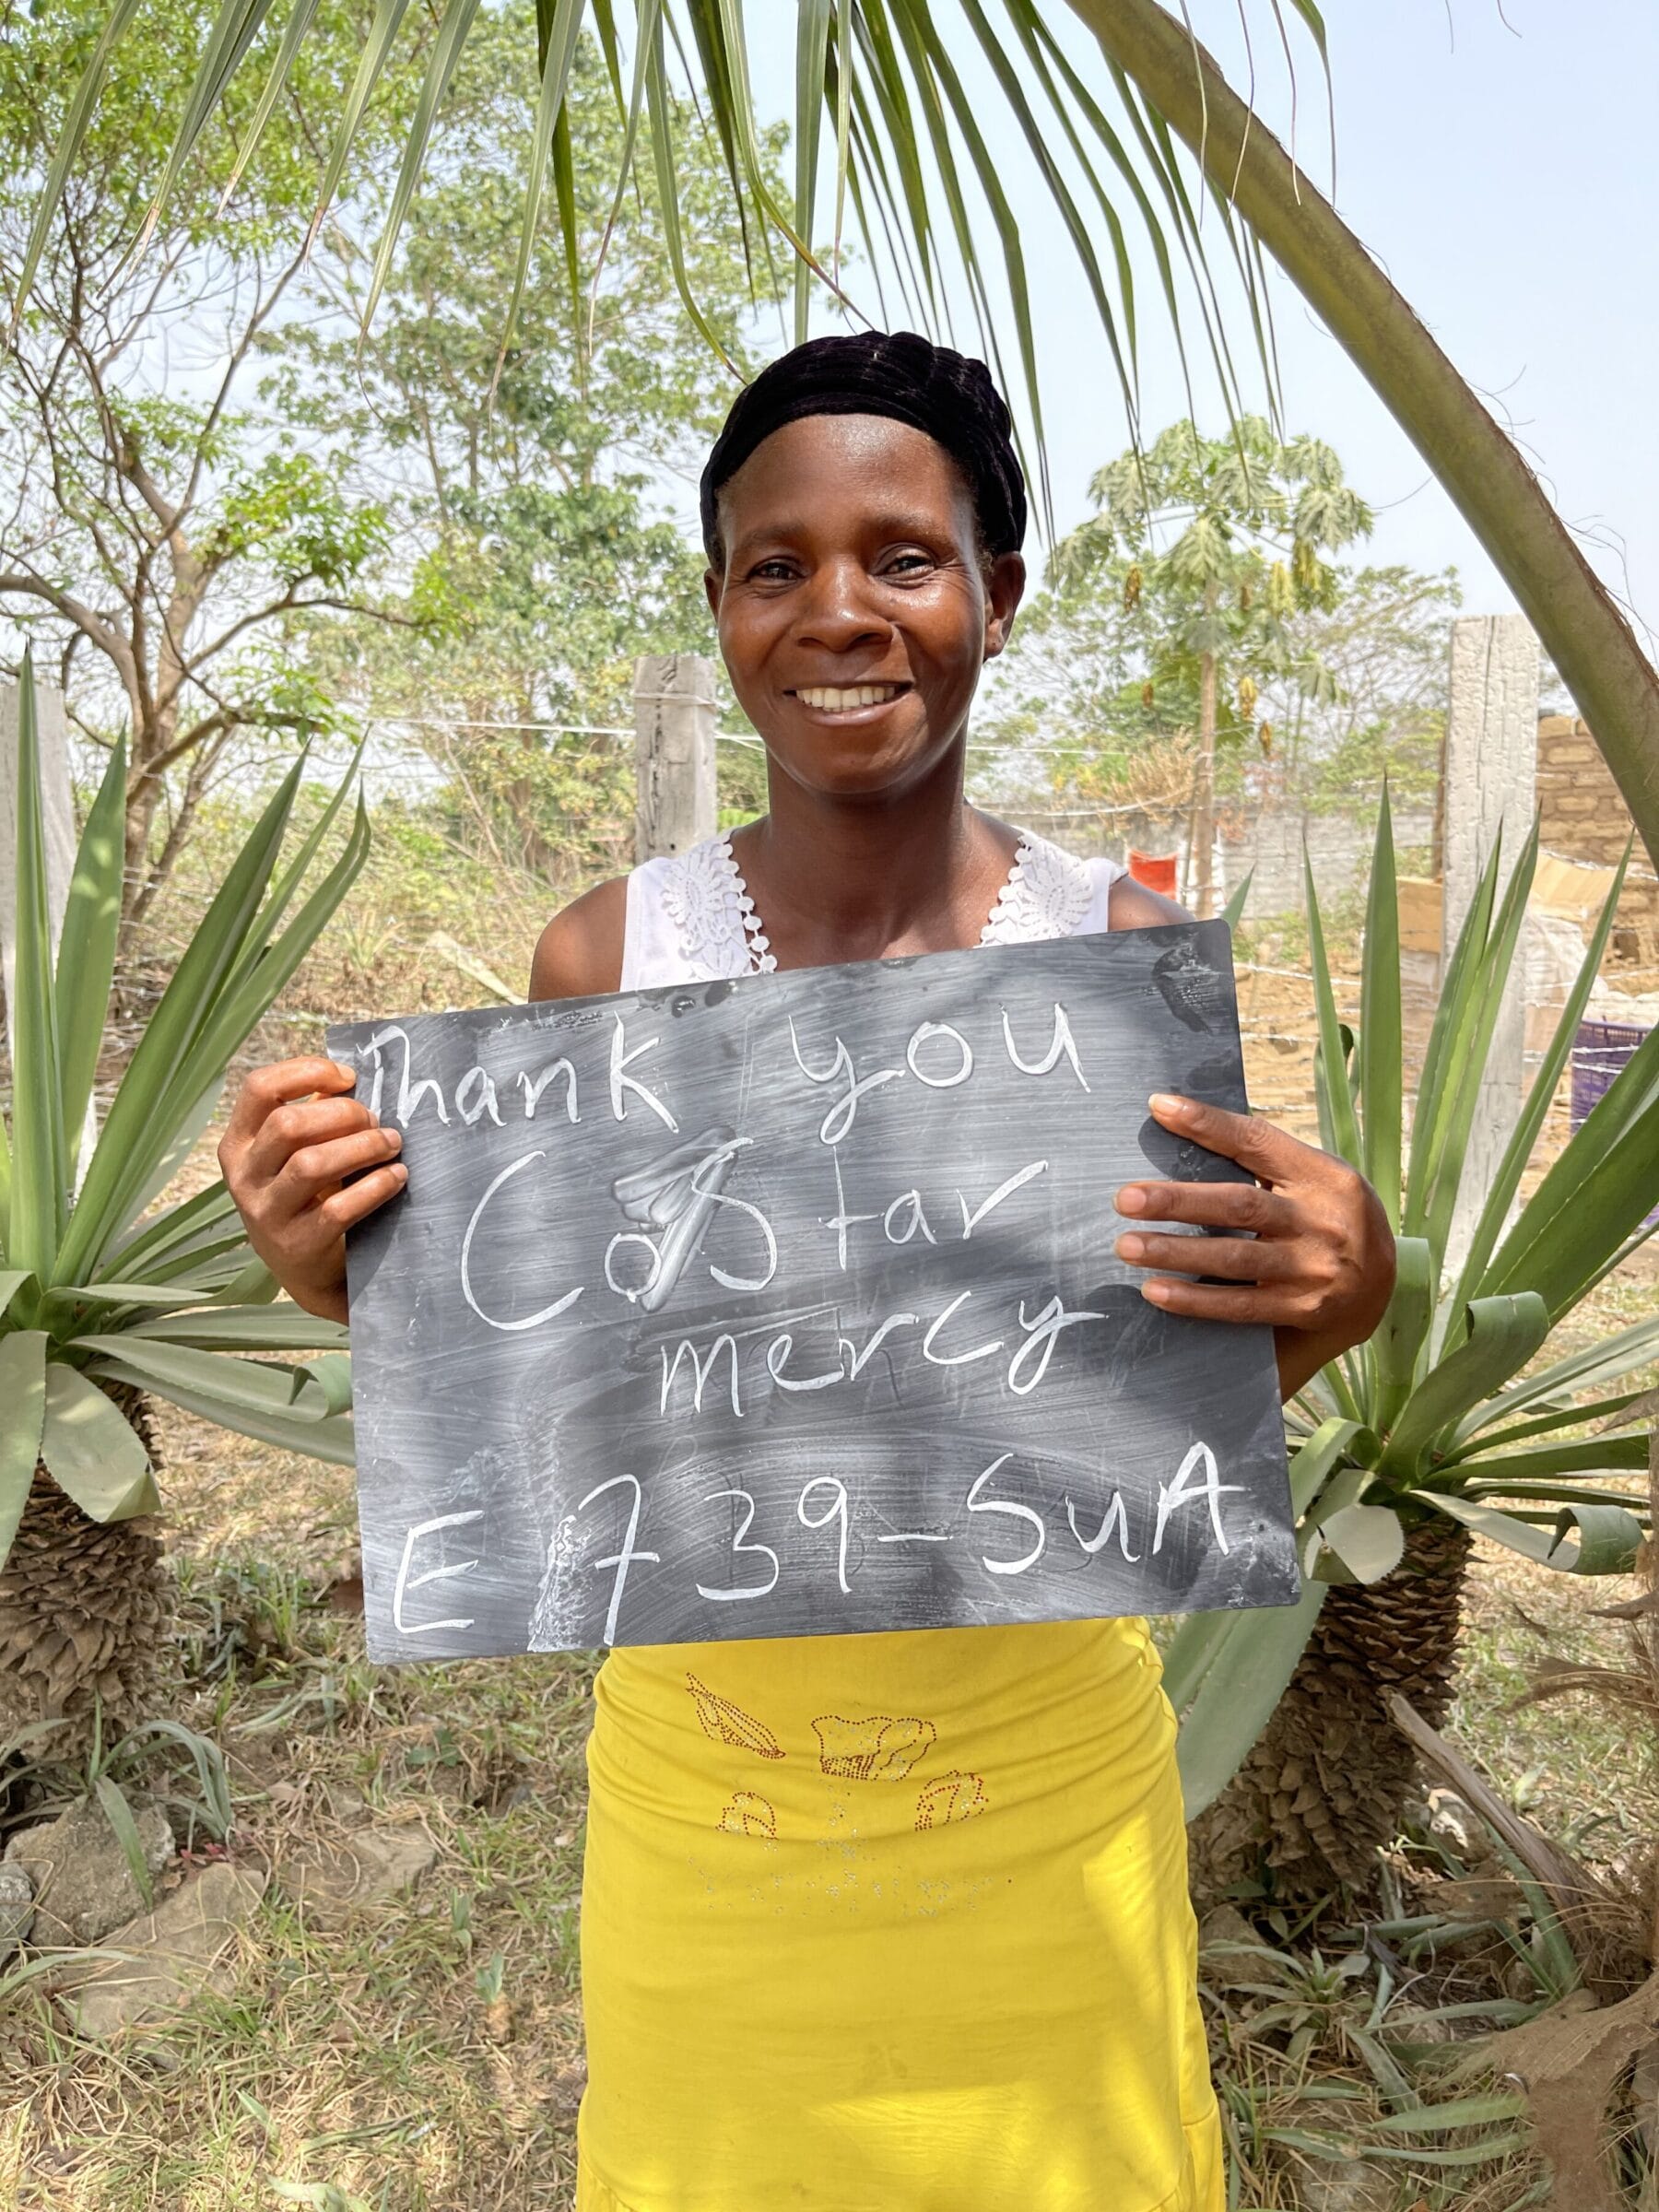 Thank you
CoStar
mercy
E 739-SuA